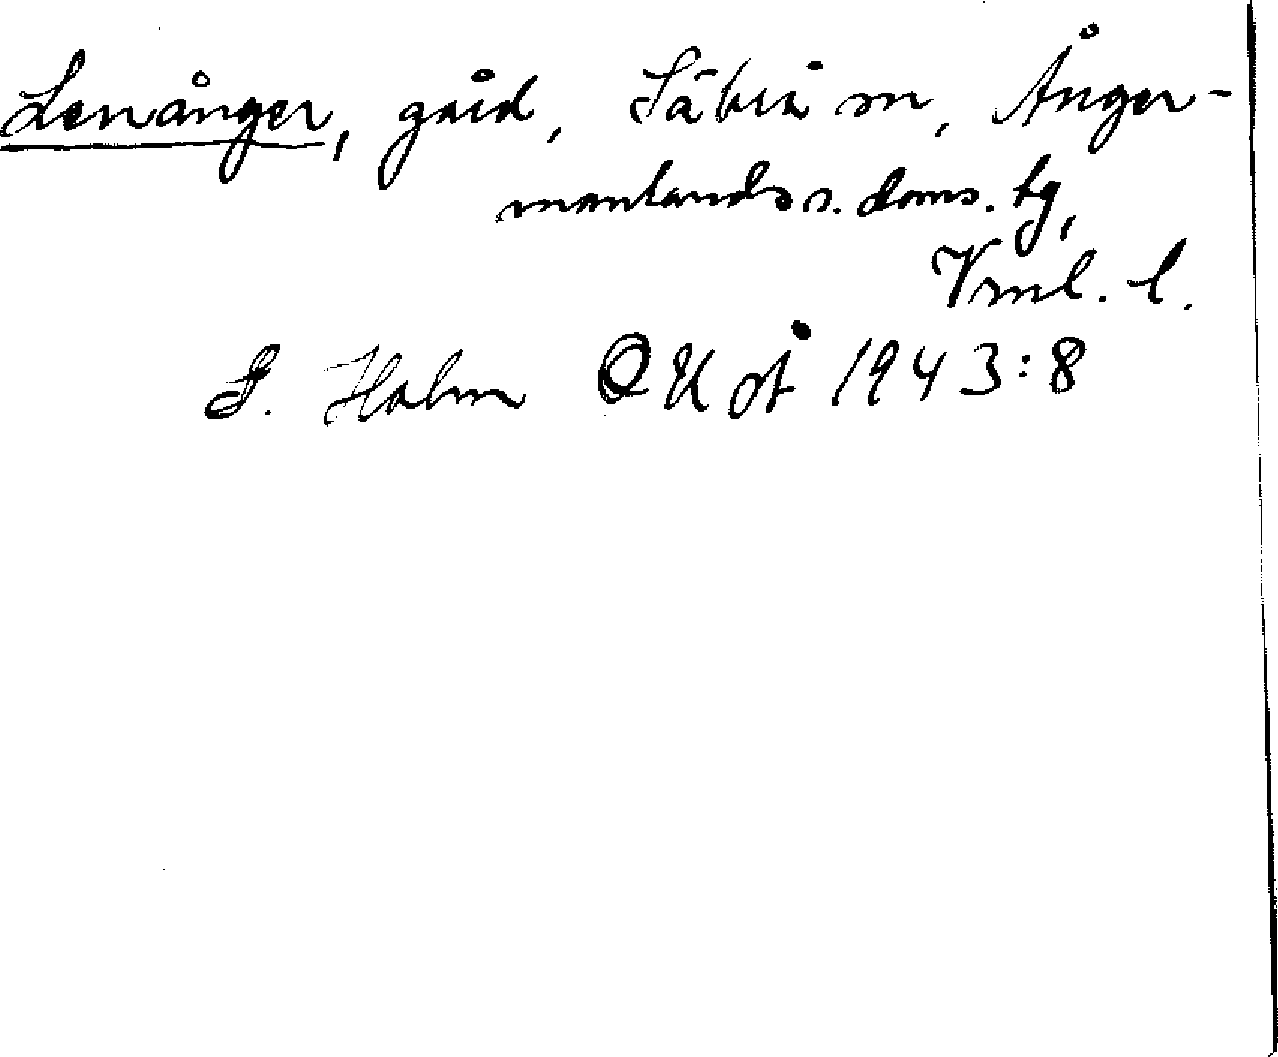 Lenånger, gård, Säbrå sn, Ånger-
manlands s. doms. tg,
Vrnl. l.
G. Holm OUÅ 1943:8